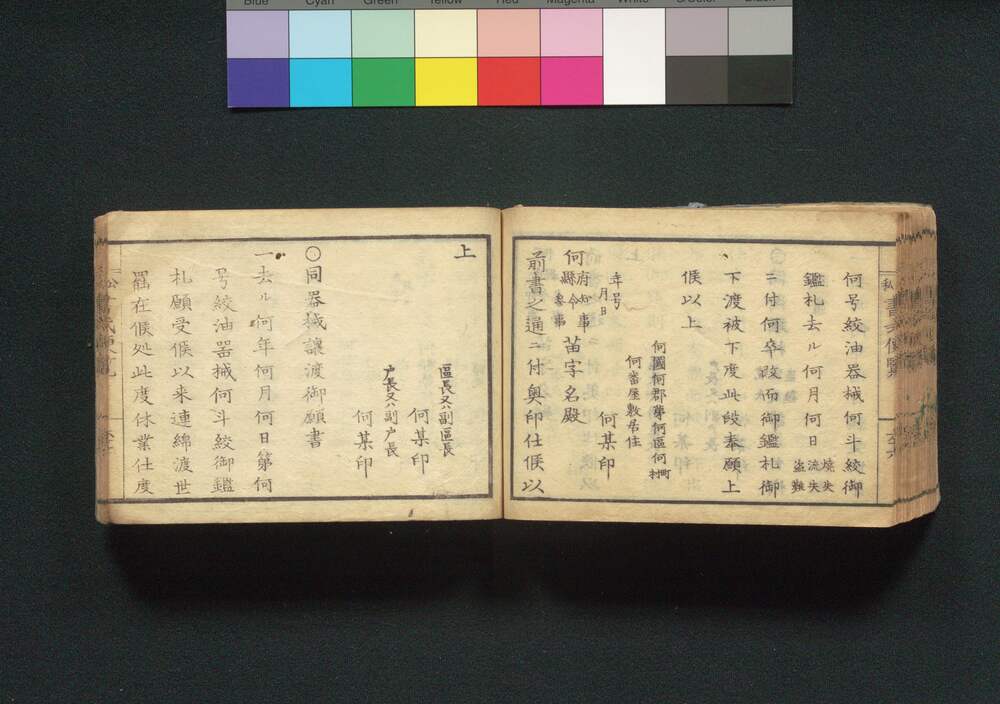 Blue Cyan Green Yellow Red Magenta White 3/Color Black
何号絞油器械何斗絞御
鑑札去ル何月何日 燒失 流失 盗難
ニ付何卒改而御鑑札御
下渡被下度此段奉願上
候以上
何國何郡第何區何町村
何番屋敷居住
何某印
年号月日
何府知事縣令参事苗字名殿
前書之通ニ付奥印仕候以
上
區長又ハ副區長
何某印
戸長又ハ副戸長
何某印
〇同器械讓渡御願書
一去ル何年何月何日第何
号絞油器械何斗絞御鑑
札願受候以来連綿渡世
罷在候処此度休業仕度